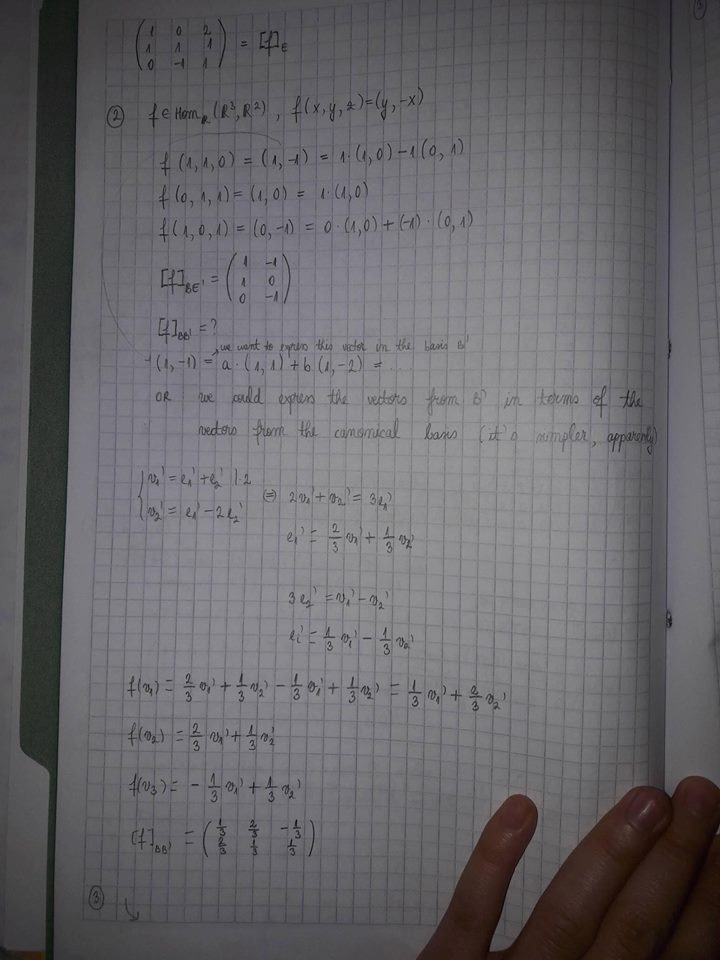 ( 1 0 2
1 1 1
0 -1 1 ) = [f]_E
② f ∈ Hom_R (R³, R²) , f(x, y, z) = (y, -x)
f (1, 1, 0) = (1, -1) = 1·(1, 0) - 1(0, 1)
f (0, 1, 1) = (1, 0) = 1·(1, 0)
f (1, 0, 1) = (0, -1) = 0·(1, 0) + (-1)·(0, 1)
[f]_BE' = ( 1 -1
1 0
0 -1 )
[f]_BB' = ?
we want to express this vector in the basis B'
(1, -1) = a·(1, 1) + b(1, -2) = ...
OR we could express the vectors from B' in terms of the
vectors from the canonical basis (it's simpler, apparently)
{ v₁' = e₁' + e₂' |·2
v₂' = e₁' - 2e₂'
⇔ 2v₁' + v₂' = 3e₁'
e₁' = 2/3 v₁' + 1/3 v₂'
3e₂' = v₁' - v₂'
= 1/3 v₁' - 1/3 v₂'
f(v₁) = 2/3 v₁' + 1/3 v₂' - 1/3 v₁' + 1/3 v₂' = 1/3 v₁' + 2/3 v₂'
f(v₂) = 2/3 v₁' + 1/3 v₂'
f(v₃) = - 1/3 v₁' + 1/3 v₂'
[f]_BB' = ( 1/3 2/3 -1/3
2/3 1/3 1/3 )
③